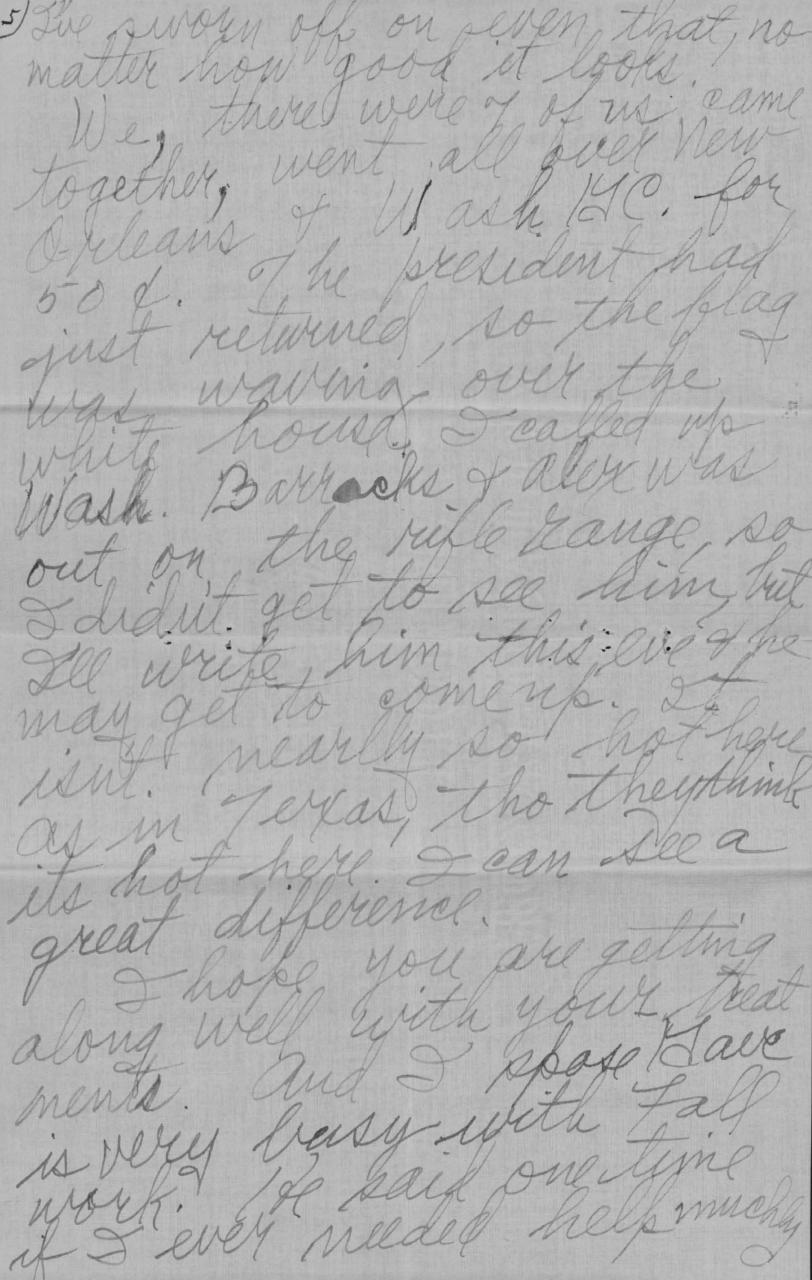 5) I've sworn off on even that, no
matter how good it looks.
We, there were 7 of us came
together, went all over New
Orleans & Wash DC. for
50¢. The president had
just returned, so the flag
was waving over the
white house. I called up
Wash. Barracks & Alex was
out on the rifle range, so
I didn't get to see him, but
I'll write him this eve & he
may get to come up. It
isn't nearly so hot here
as in Texas, tho they think
its hot here. I can see a
great difference.
I hope you are getting
along well with your treat
ments. And I spose Dave
is very busy with Fall
work. He said one time
if I ever needed help muchly